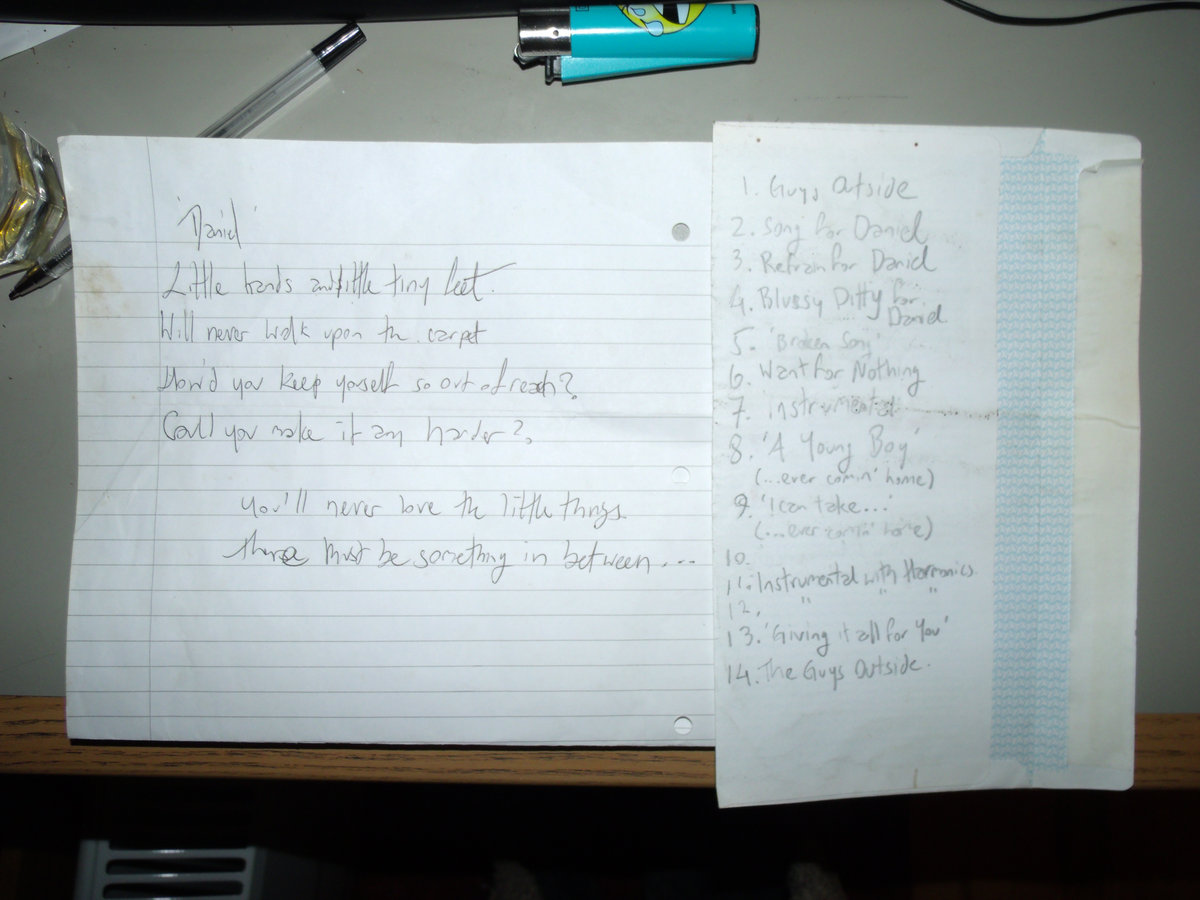 'Daniel'
Little hands and little tiny feet.
Will never walk upon the carpet
How'd you keep yorself so out of reach?
Could you make it any harder?
You'll never love the little things
there must be something in between...
1. Guys Outside
2. Song for Daniel
3. Refrain for Daniel
4. Blussy Ditty for
Daniel
5. 'Broken Song'
6. Want for Nothing
7. instrumental
8. 'A Young Boy'
(...ever comin' home)
9. 'I can take...'
(...ever comin' home)
10.
11. Instrumental with Harmonics
12. " " "
13. 'Giving it all for You'
14. The Guys Outside.